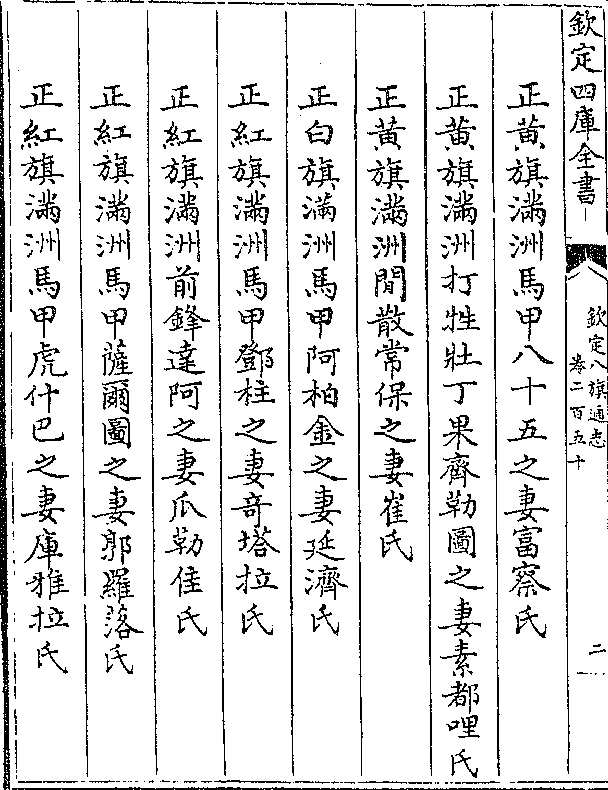 欽定四庫全書
欽定八旗通志
卷二百五十
二
正黃旗滿洲馬甲八十五之妻富察氏
正黃旗滿洲打牲壯丁果齊勒圖之妻素都哩氏
正黃旗滿洲閒散常保之妻崔氏
正白旗滿洲馬甲阿柏金之妻延濟氏
正紅旗滿洲馬甲鄧柱之妻奇塔拉氏
正紅旗滿洲前鋒達阿之妻瓜勒佳氏
正紅旗滿洲馬甲薩爾圖之妻郭羅洛氏
正紅旗滿洲馬甲虎什巴之妻庫雅拉氏